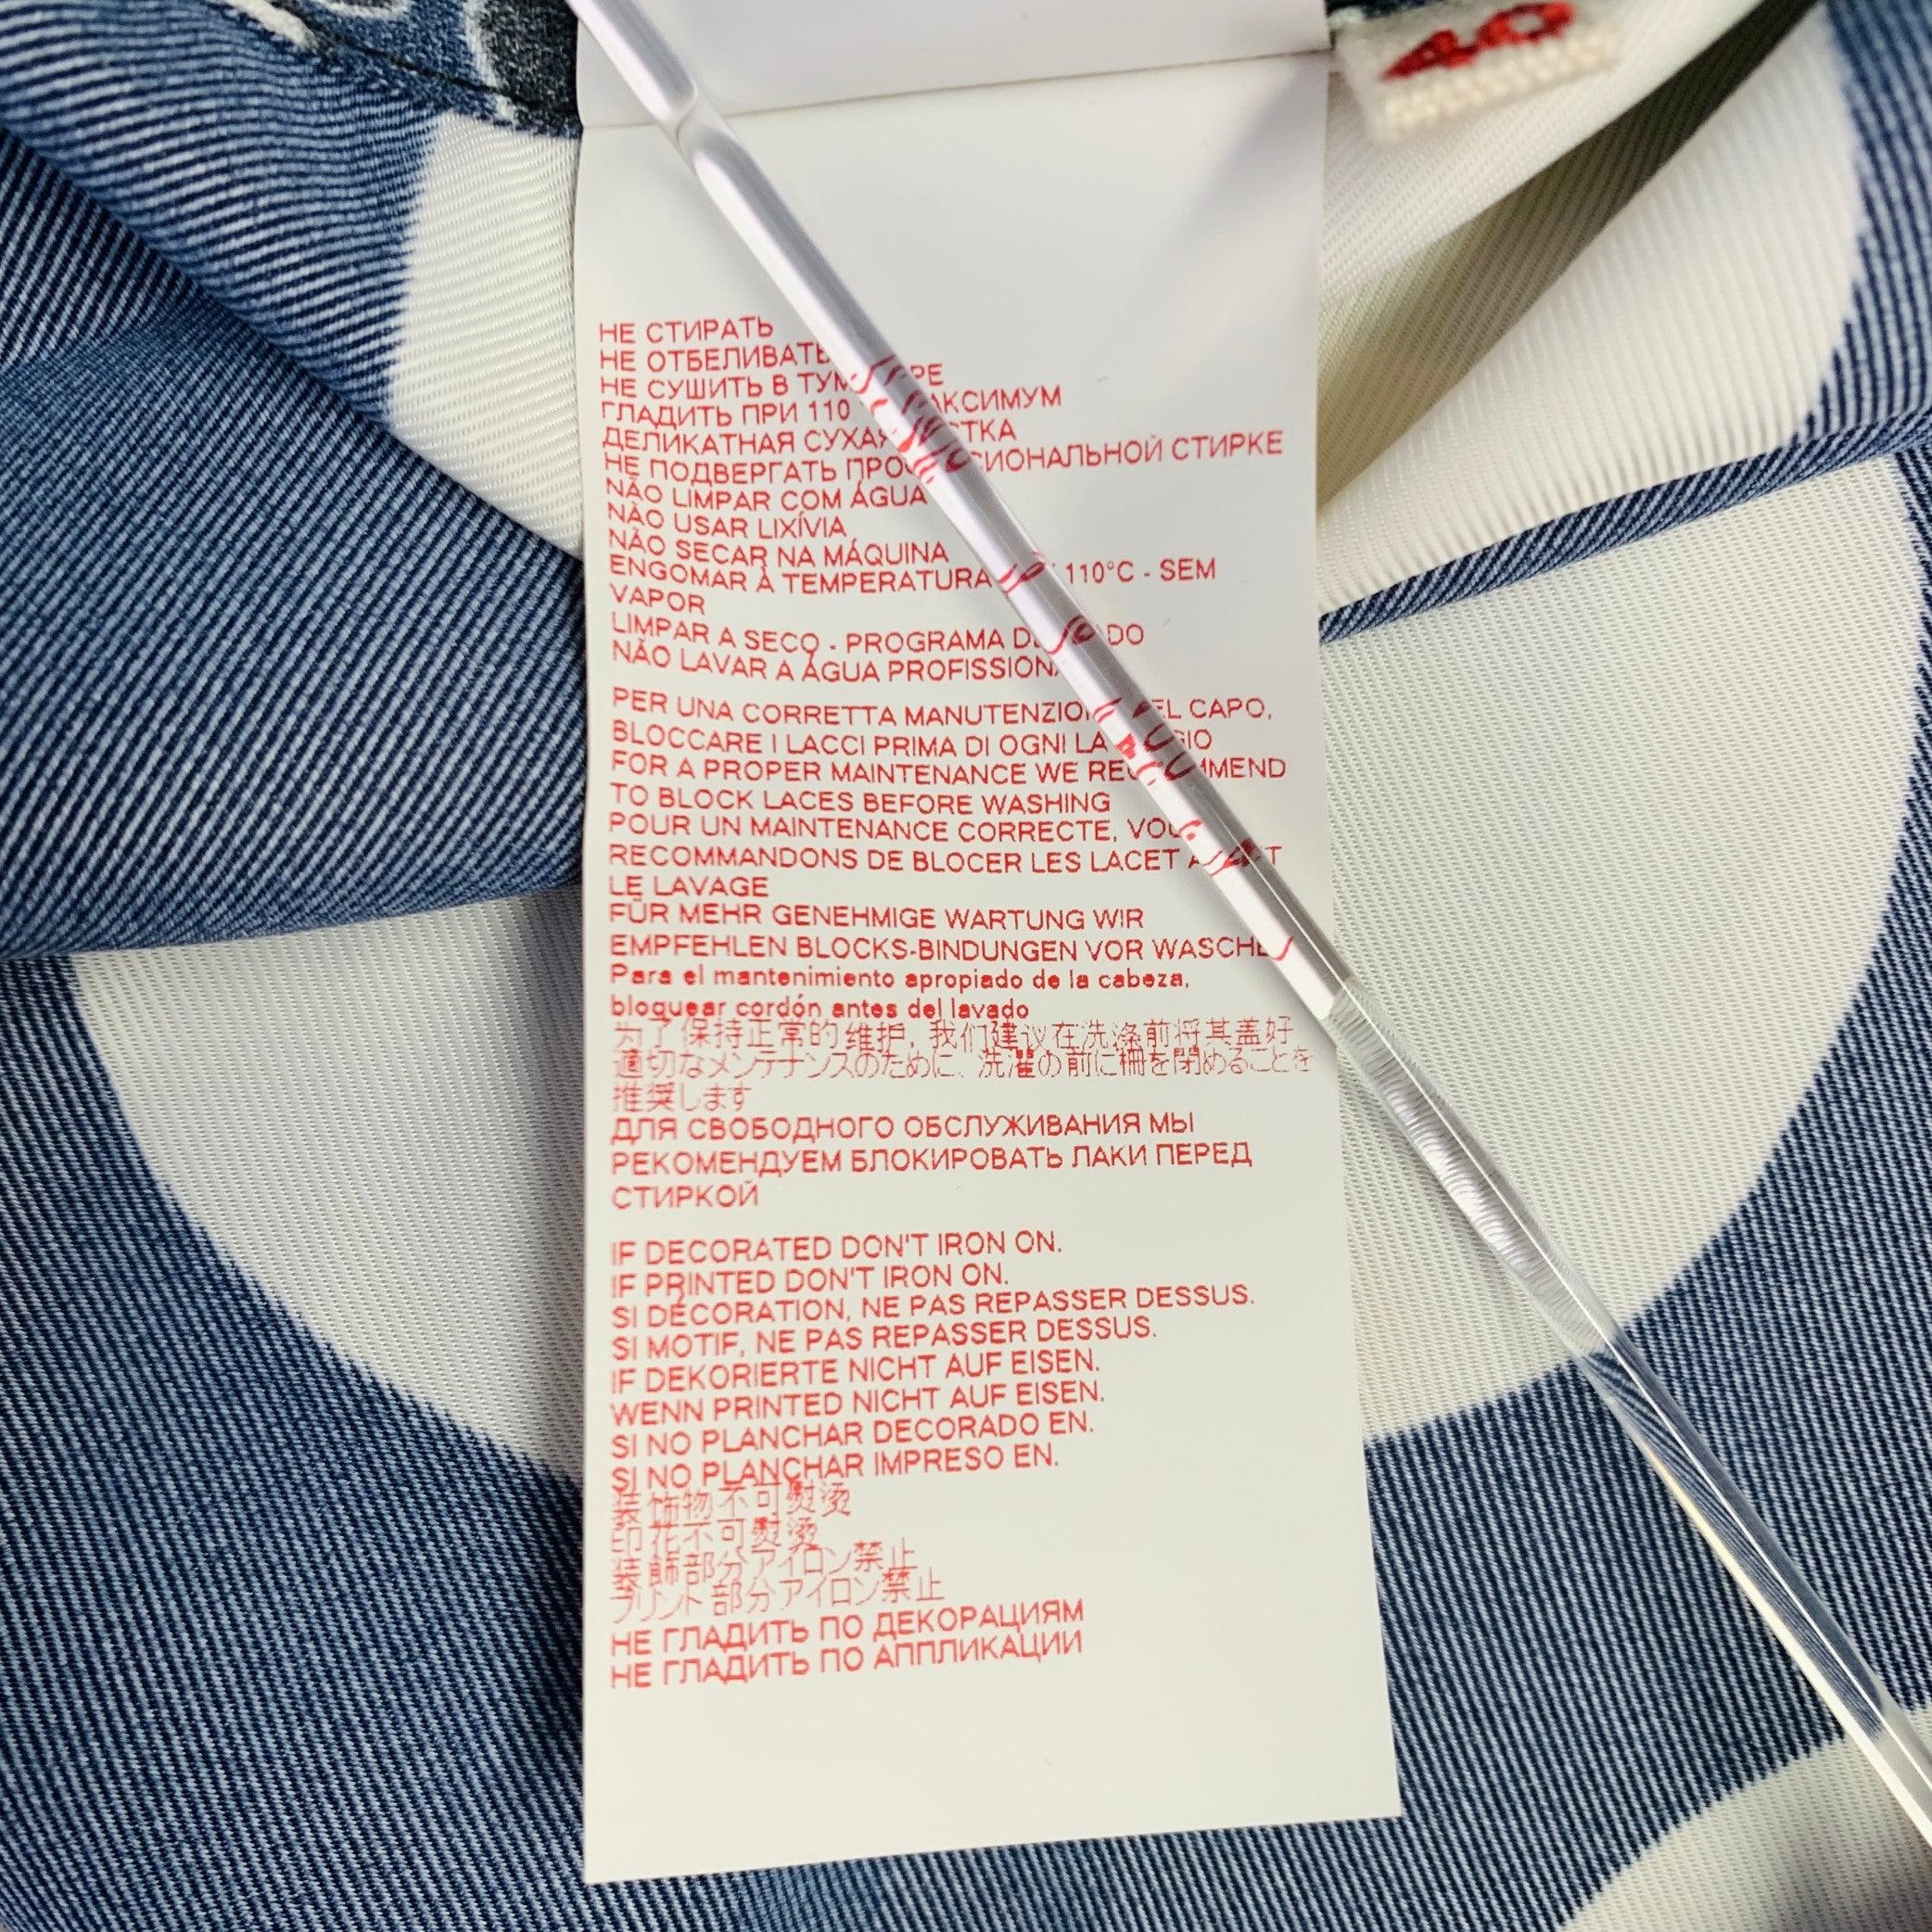 40
НЕ СТИРАТЬ
НЕ ОТБЕЛИВАТЬ
НЕ СУШИТЬ В
ГЛАДИТЬ ПРИ 110
ДЕЛИКАТНАЯ
НЕ ПОДВЕРГАТЬ СТИРКЕ
NÃO LIMPAR COM ÁGUA
NÃO USAR LIXÍVIA
NÃO SECAR NA MÁQUINA
ENGOMAR À TEMPERATURA 110°C - SEM
VAPOR
LIMPAR A SECO - PROGRAMA
NÃO LAVAR A ÁGUA
PER UNA CORRETTA MANUTENZIONE DEL CAPO,
BLOCCARE I LACCI PRIMA DI OGNI
FOR A PROPER MAINTENANCE WE RECOMMEND
TO BLOCK LACES BEFORE WASHING
POUR UN MAINTENANCE CORRECTE, VOUS
RECOMMANDONS DE BLOCER LES LACET AVANT
LE LAVAGE
FÜR MEHR GENEHMIGE WARTUNG WIR
EMPFEHLEN BLOCKS-BINDUNGEN VOR
Para el mantenimiento apropiado de la cabeza,
bloquear cordón antes del lavado
为了保持正常的维护, 我们建议在洗涤前将其盖好
適切なメンテナンスのために、洗濯の前に柵を閉めることを
推奨します
ДЛЯ СВОБОДНОГО ОБСЛУЖИВАНИЯ МЫ
РЕКОМЕНДУЕМ БЛОКИРОВАТЬ ЛАКИ ПЕРЕД
СТИРКОЙ
IF DECORATED DON'T IRON ON.
IF PRINTED DON'T IRON ON.
SI DÉCORATION, NE PAS REPASSER DESSUS.
SI MOTIF, NE PAS REPASSER DESSUS.
IF DEKORIERTE NICHT AUF EISEN.
WENN PRINTED NICHT AUF EISEN.
SI NO PLANCHAR DECORADO EN.
SI NO PLANCHAR IMPRESO EN.
装饰物不可熨烫
印花不可熨烫
装飾部分アイロン禁止
プリント部分アイロン禁止
НЕ ГЛАДИТЬ ПО ДЕКОРАЦИЯМ
НЕ ГЛАДИТЬ ПО АППЛИКАЦИИ